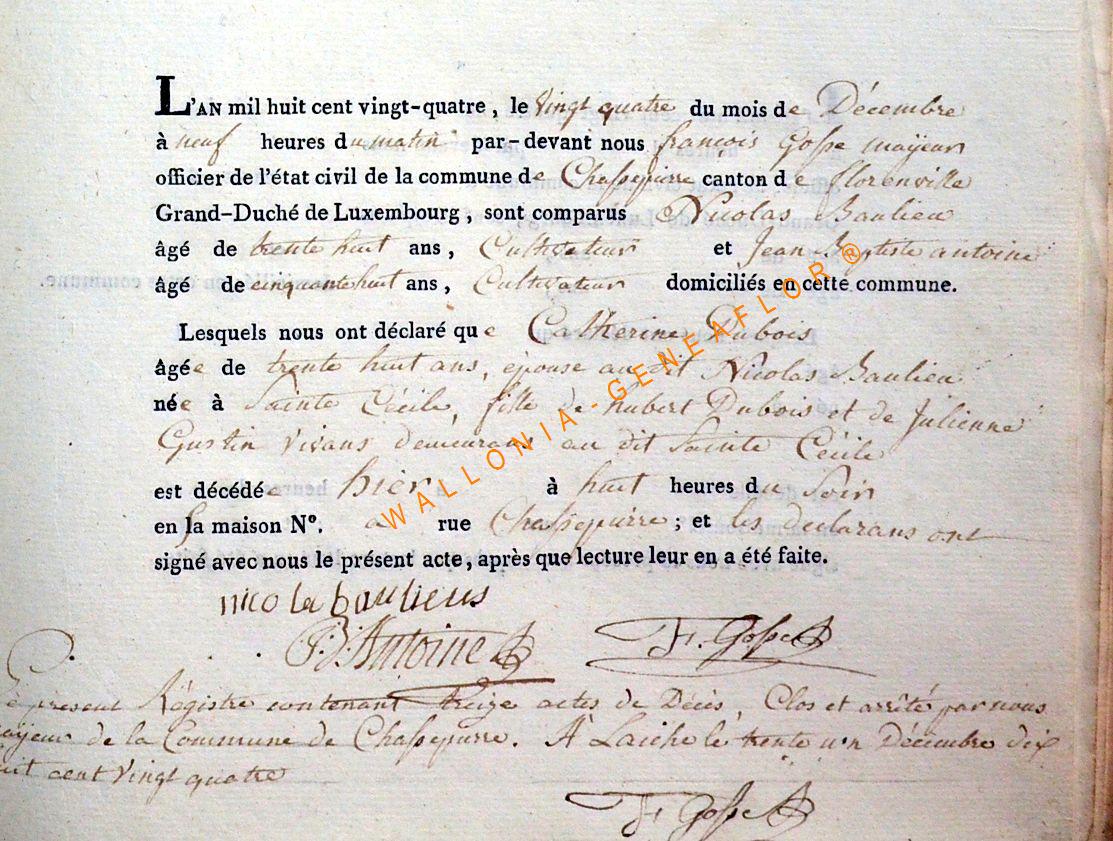 L'AN mil huit cent vingt-quatre, le vingt quatre du mois de Décembre
à neuf heures du matin par-devant nous françois Gosse mayeur
officier de l'état civil de la commune de Chassepierre canton de florenville
Grand-Duché de Luxembourg, sont comparus Nicolas Baulieu
âgé de trente huit ans, Cultivateur et Jean Baptiste antoine
âgé de cinquante huit ans, Cultivateur domiciliés en cette commune.
Lesquels nous ont déclaré que Catherine Dubois
âgée de trente huit ans, épouse au dit Nicolas Baulieu
née à Sainte Cécile, fille de hubert Dubois et de Julienne
Gustin vivans demeurans au dit Sainte Cécile
est décédée hier à huit heures du Soir
en la maison Nº. a rue Chassepierre; et les declarans ont
signé avec nous le présent acte, après que lecture leur en a été faite.
nicola bauliens
J.B. Antoine
Fr. Gosse
présent Régistre contenant treize actes de Décès, Clos et arrêté par nous
mayeur de la Commune de Chassepierre. A Laiche le trente un Décembre dix
huit cent vingt quatre
Fr. Gosse
WALLONIA-GENEAFLOR®